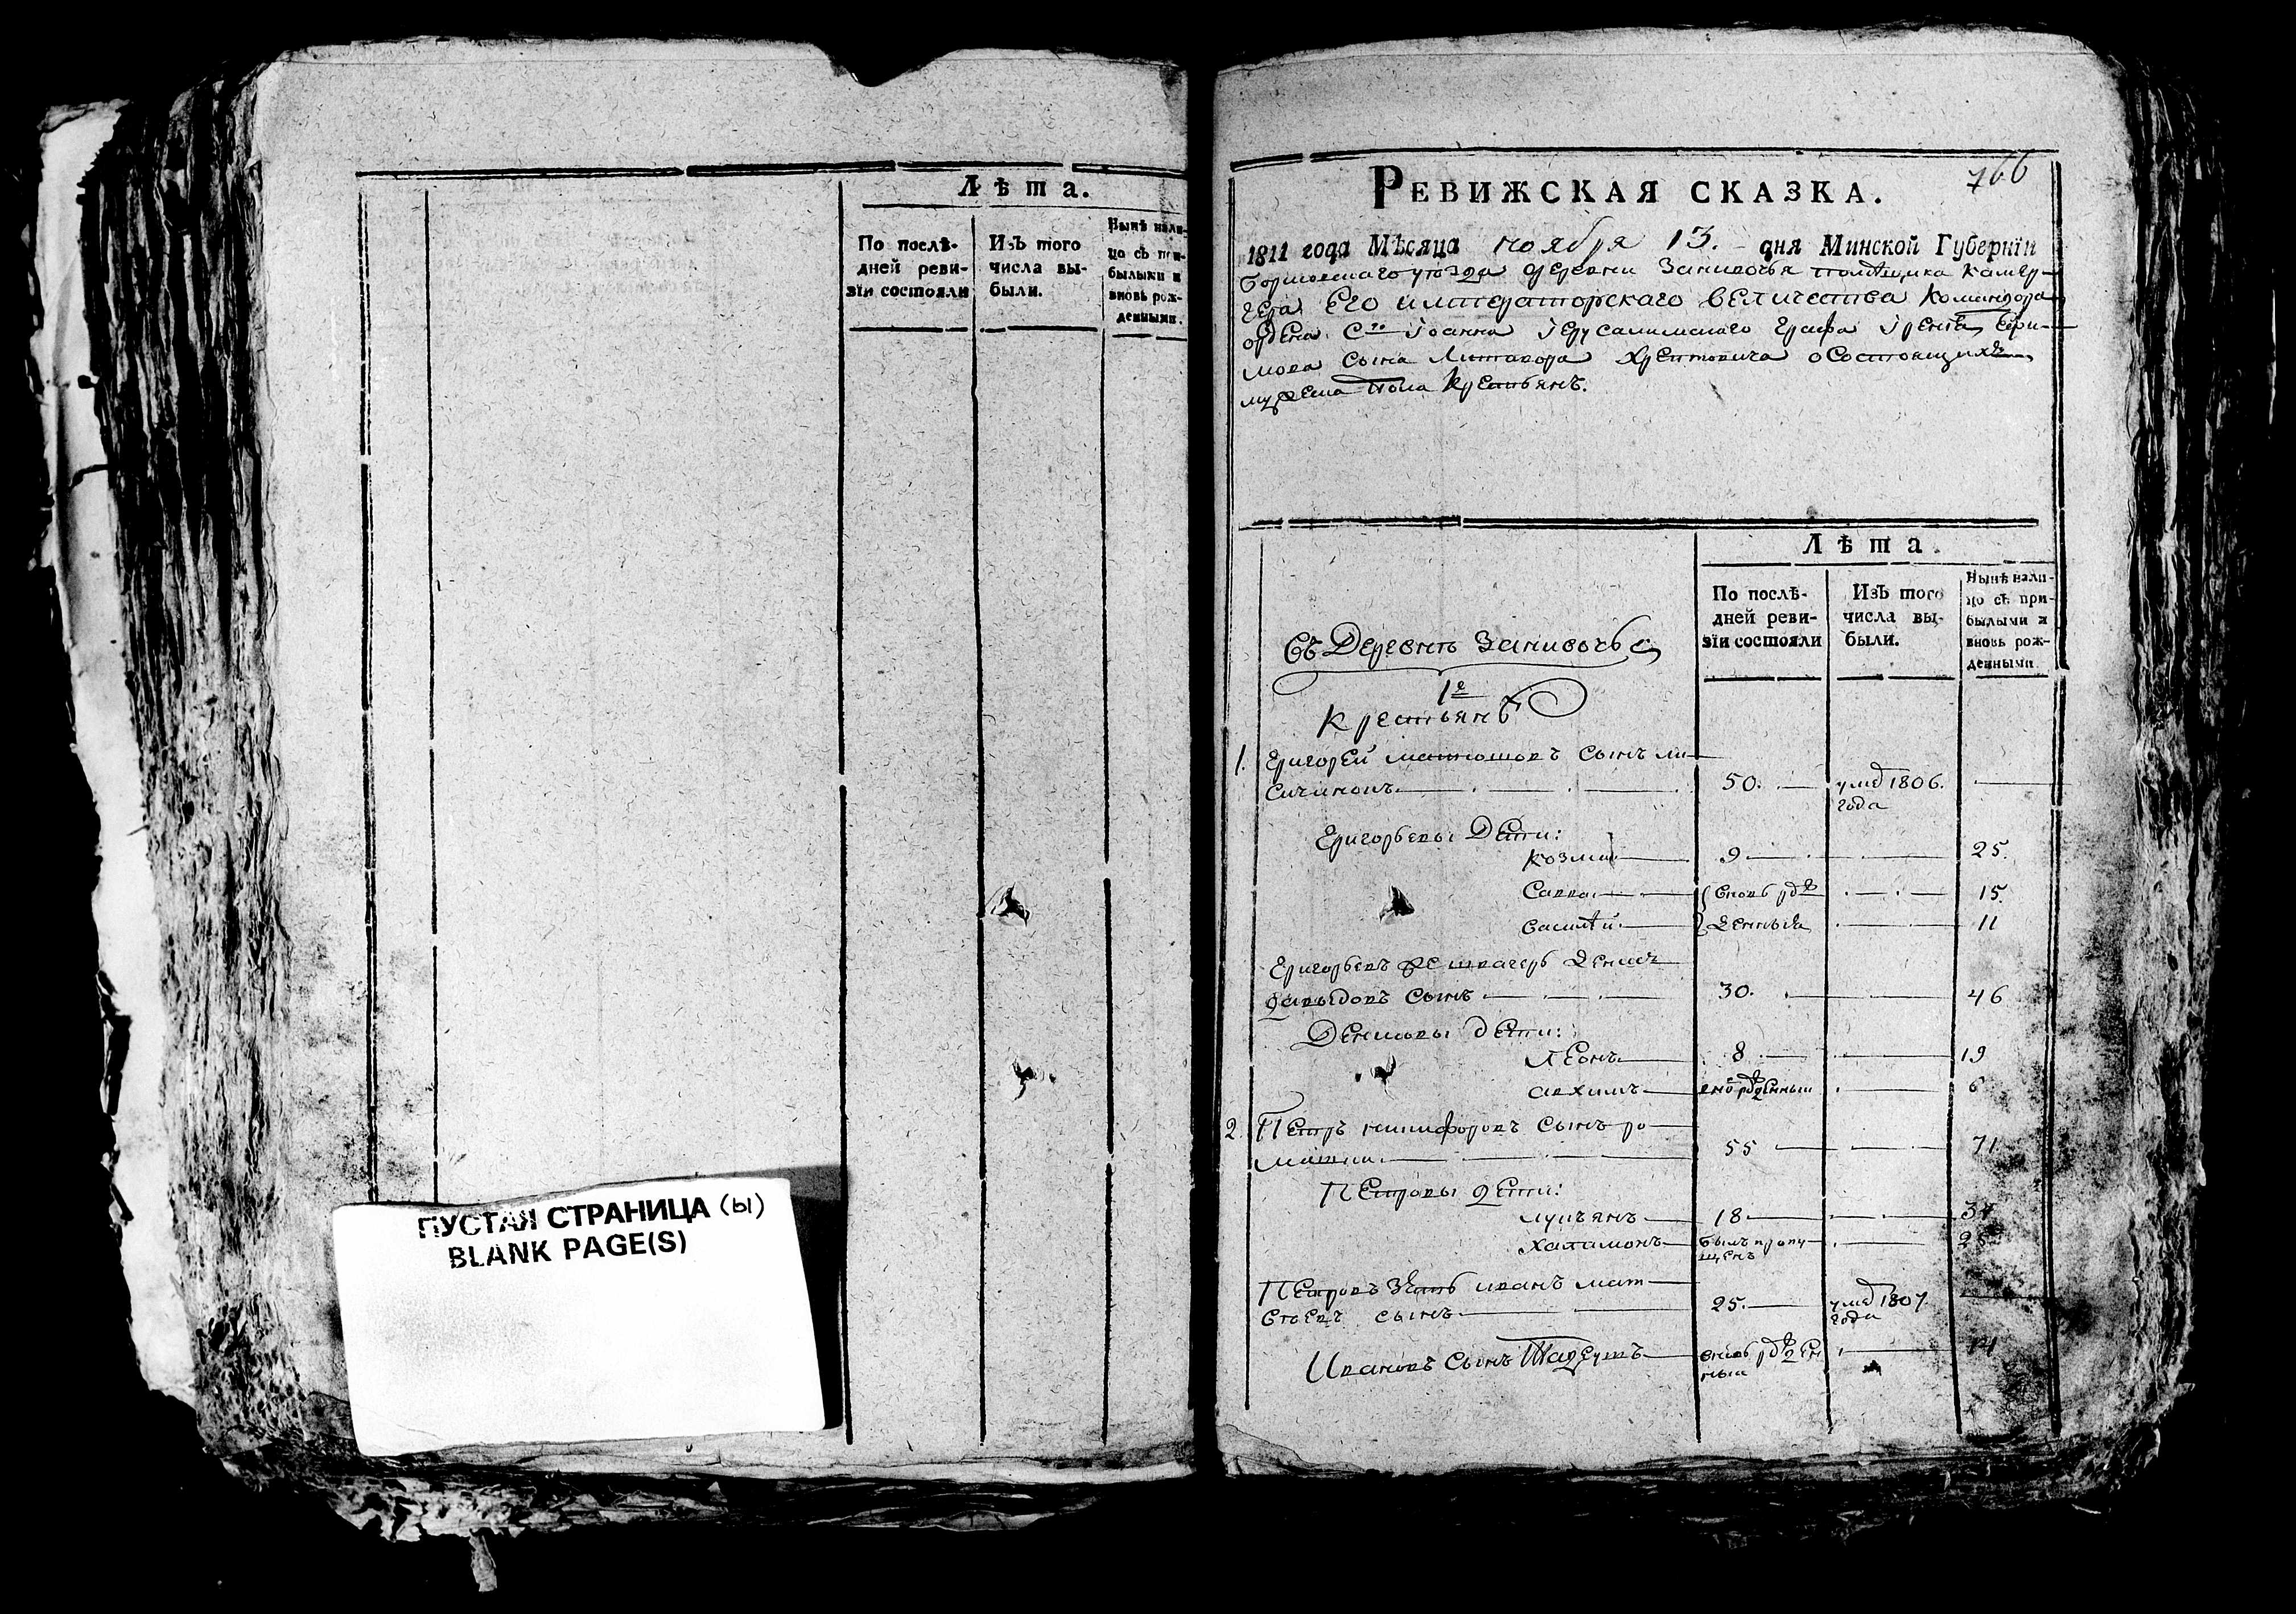 Лѣта.
По послѣ-
дней реви-
зїи состояли
Изъ того
числа вы-
были.
Нынѣ нали-
цо съ при-
былыми и
вновь рож-
денными.
ПУСТАЯ СТРАНИЦА (ы)
BLANK PAGE(S)
766
Ревижская сказка.
1811 года Мѣсяца ноября 13. дня Минской Губернїи
Борисовскаго уѣзда деревни Замисочья помѣщика Камер-
гера Его императорскаго величества Командора
ордена Сго Іоанна Іерусалимскаго Графа Іренея Ефи-
мова Сына Литавора Хрептовича о Состоящихъ
мужеска пола Крестьянъ.
Лѣта.
По послѣ-
дней реви-
зїи состояли
Изъ того
числа вы-
были.
Нынѣ нали-
цо съ при-
былыми и
вновь рож-
денными
Въ Деревнѣ
1е
Крестьянъ
1. Григорей Матюшовъ Сынъ
50. умер 1806.
года
Григорьевы Дети:
Козма 9 25.
Савва вновь рож 15.
Василѣй денныя 11
Григорьевъ же швагеръ Денисъ
Давыдовъ Сынъ 30. 46
Денисовы дети:
Леонъ 8 19
Авхимъ вно рожденный 6
2. Петръ Никифоровъ Сынъ ро-
55 71
Петровы дети:
Лукъянъ 18 34
Халимонъ былъ пропу
щенъ
Петровъ Зять иванъ мат
вѣевъ сынъ 25. умер 1807.
года
Ивановъ Сынъ Тадеушъ вновь рожден
ный 14